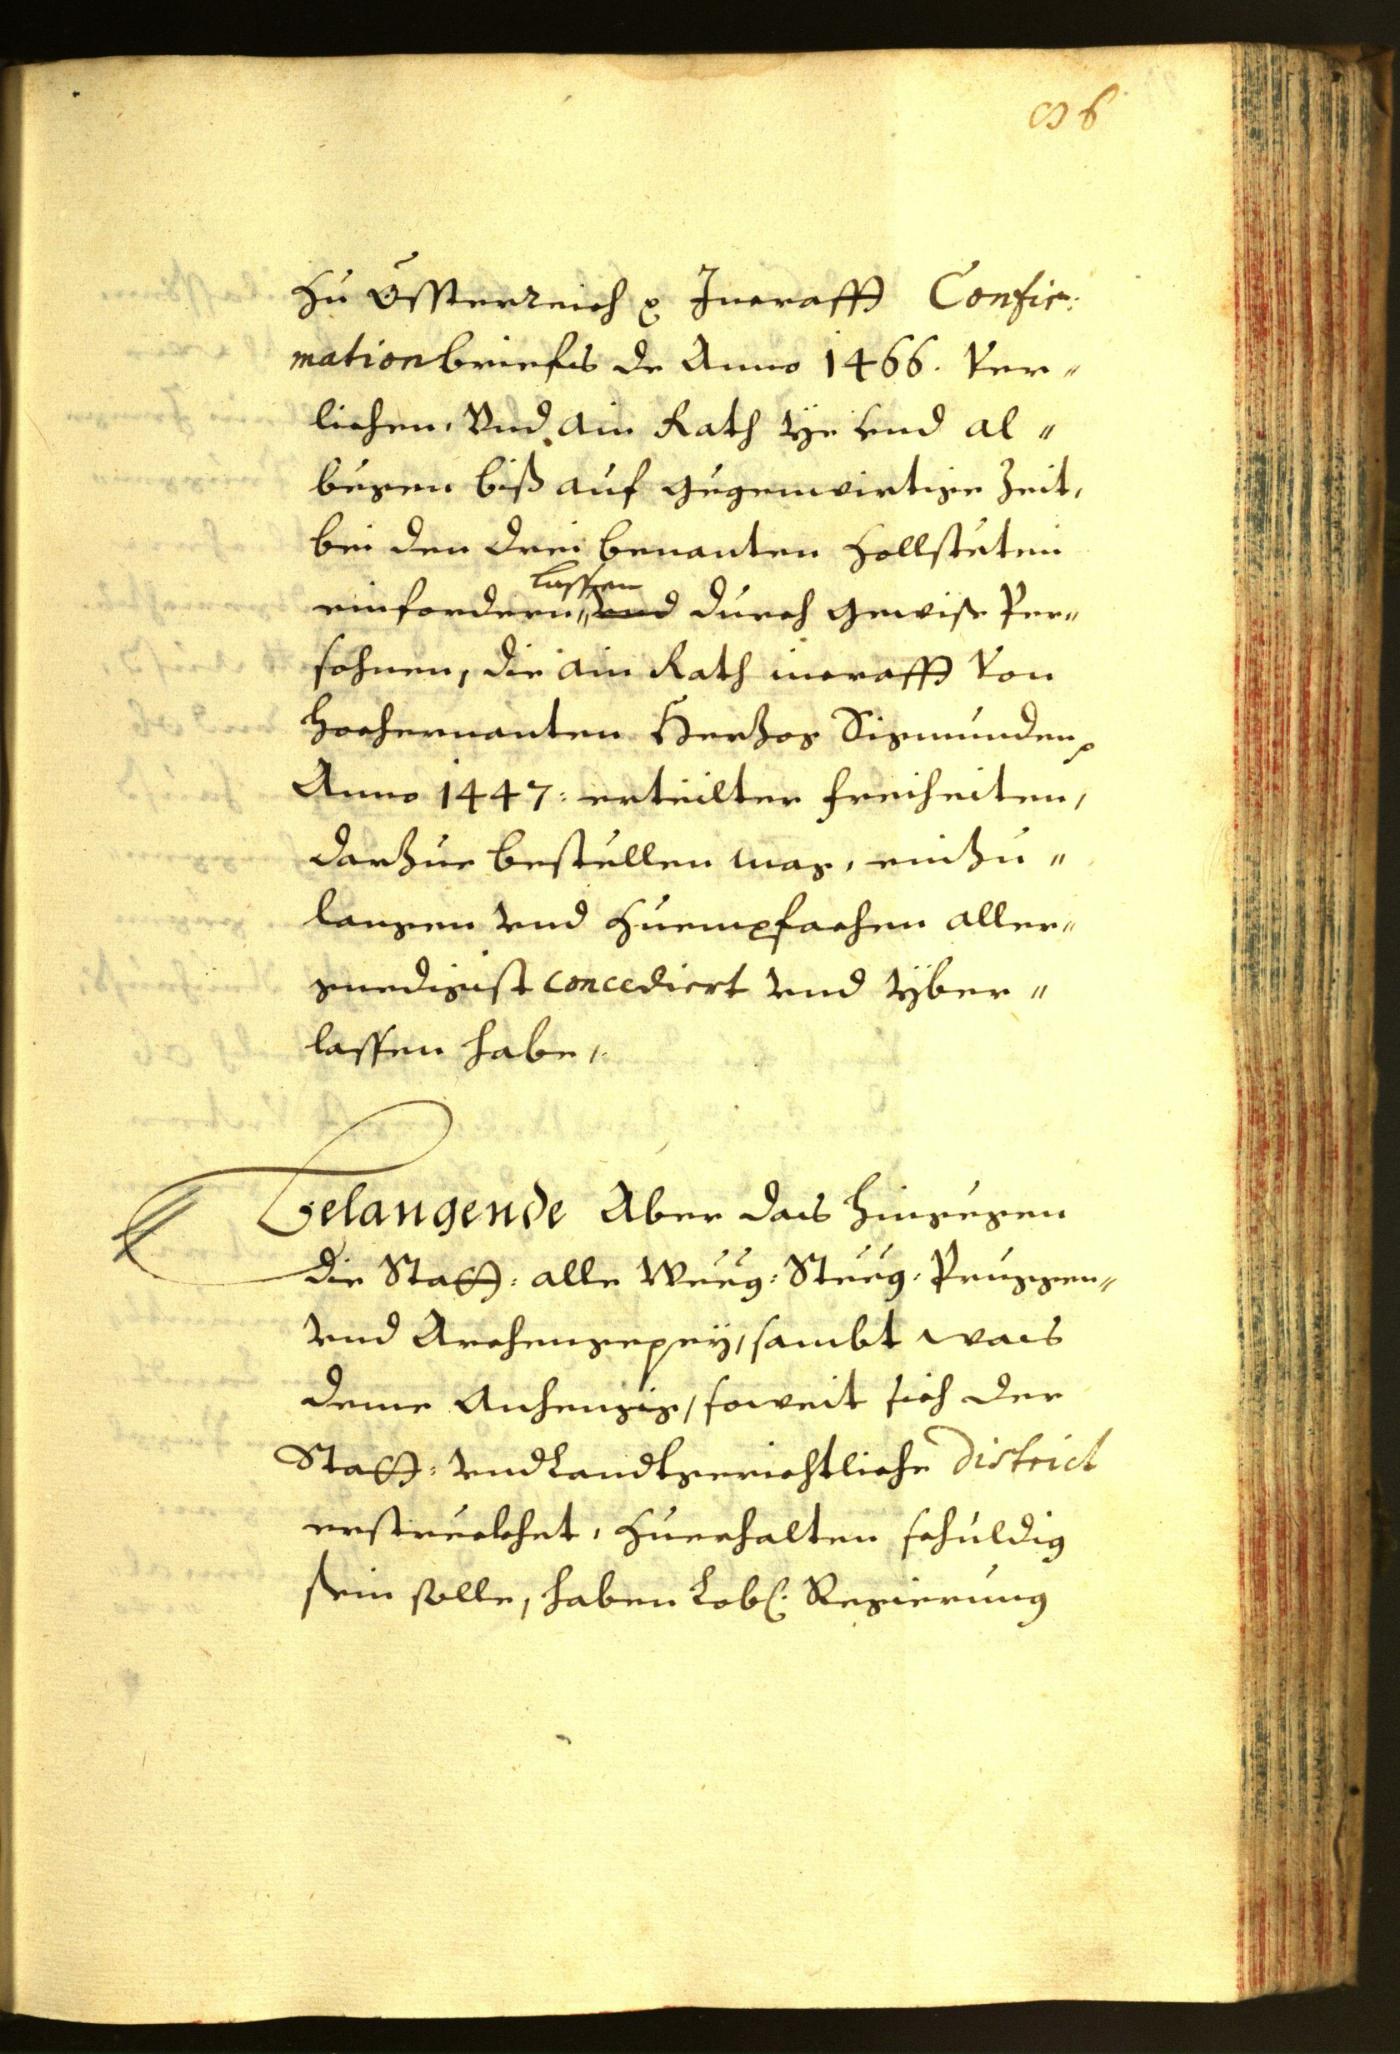 86
Zu Össterreich p Jncrafft Confir:
mation briefs de Anno 1466. Ver=
lichen. Vnd ain Rath ye vnd al=
wegen biß auf gegenwirtige Zeit,
bei den drei benanten Zollsteten
einfordern, lassen vnd durch gewiße Per=
sohnen, die ain Rath incrafft Von
hochernanten Herzog Sigmunden p
Anno 1447: erteilter freiheiten,
darzue bestellen mag, einzu=
langen vnd zuempfachen aller=
gnedigist concediert vnd yber=
lassen habe,
Gelangende Aber das hingegen
die Statt: alle Weeg: Steeg: Pruggen=
vnd Archengepey, sambt was
deme Anhengig, soweit sich der
Statt: vnd Landtgerichtliche District
erstreckhet, zuerhalten schuldig
sein solle, haben Lobl: Regierung